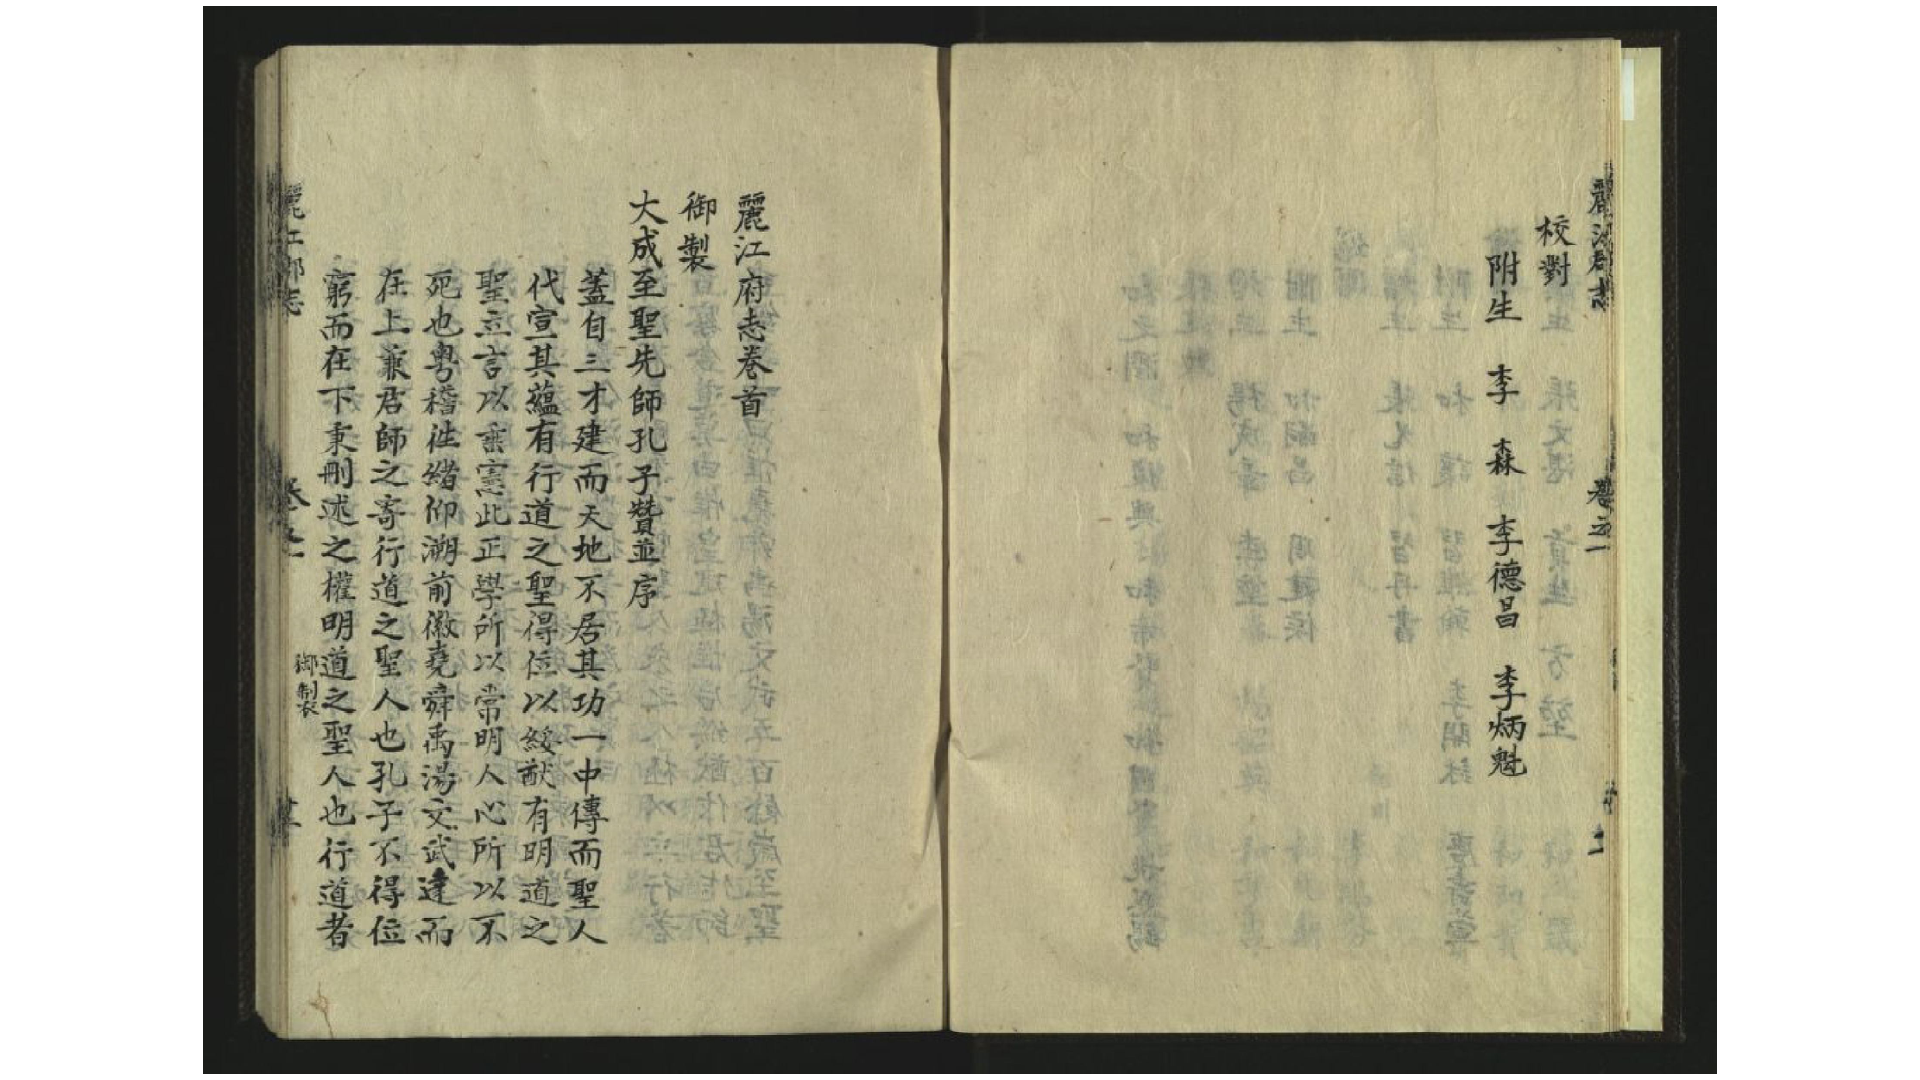 校對
附生 李 森 李德昌 李炳魁
麗江府志卷首
御製
大成至聖先師孔子贊並序
蓋自三才建而天地不居其功一中傳而聖人
代宣其蘊有行道之聖得位以綏猷有明道之
聖立言以垂憲此正學所以常明人心所以不
死也粵稽徃緒仰溯前徽堯舜禹湯文武達而
在上兼君師之寄行道之聖人也孔子不得位
窮而在下秉刪述之權明道之聖人也行道者
御製